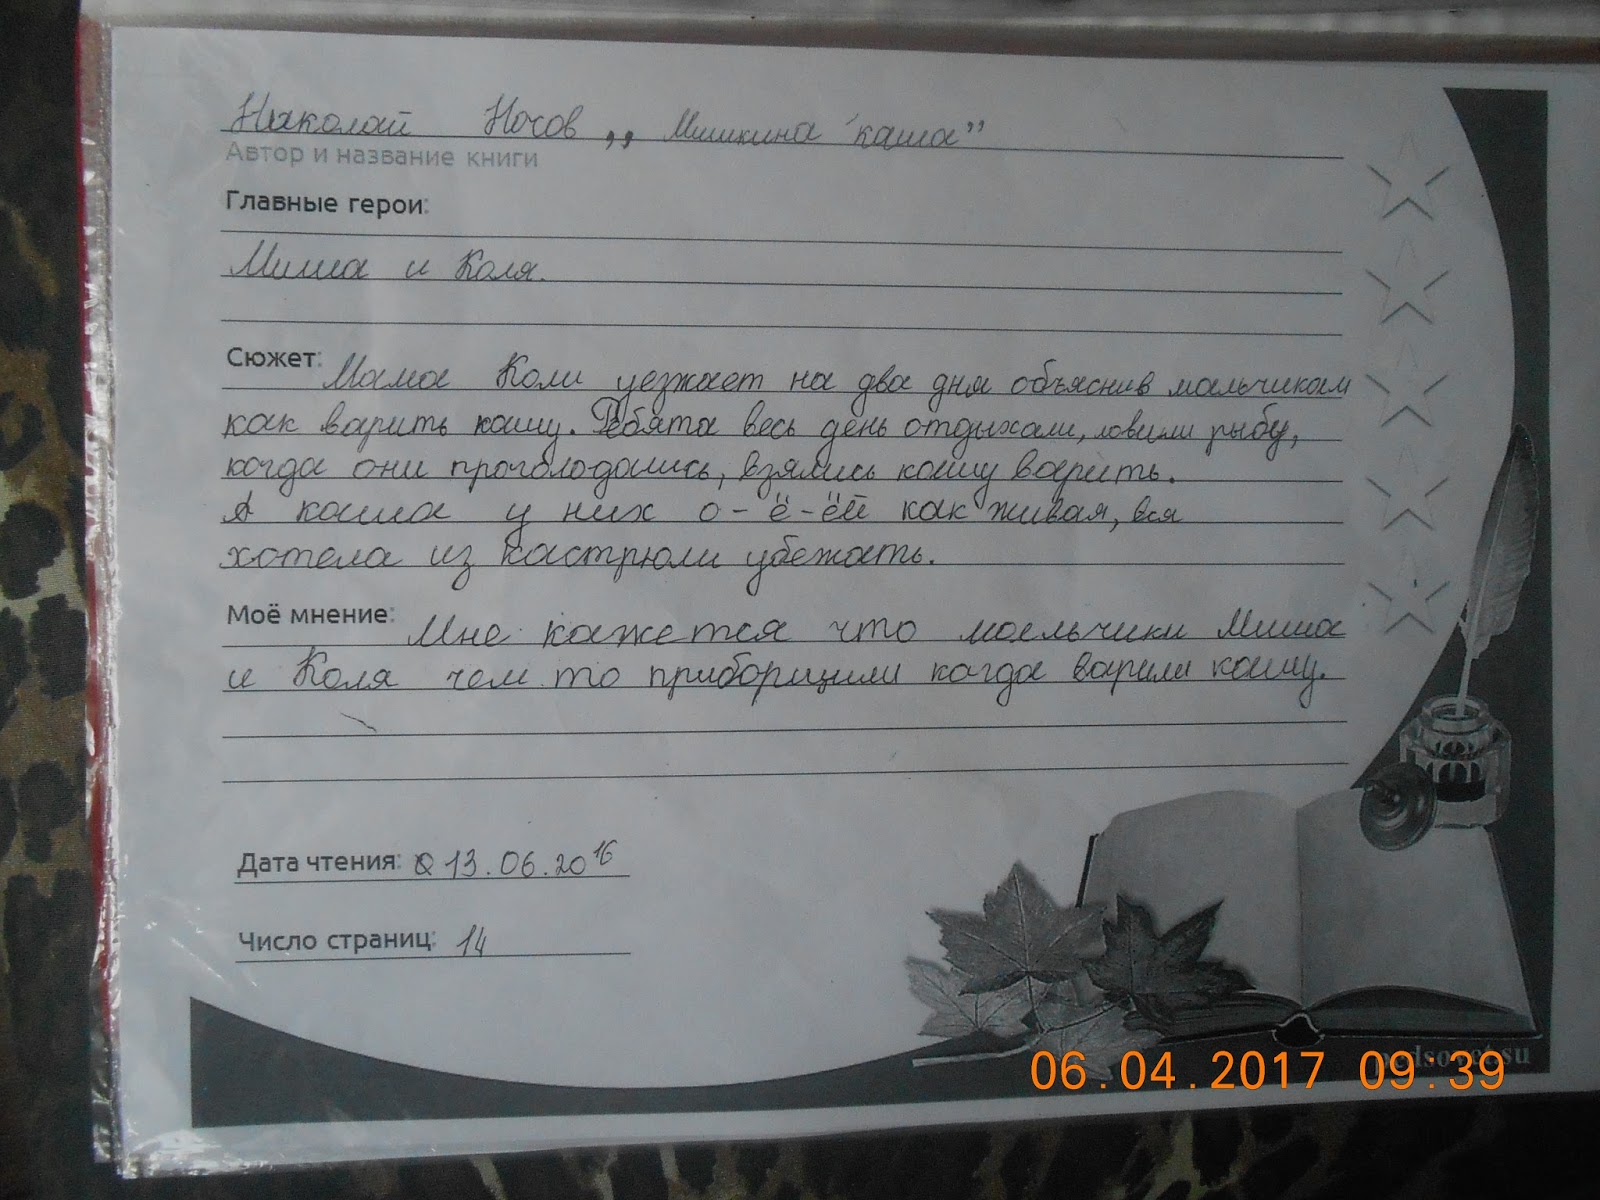 Николай Носов ,, Мишкина каша”
Автор и название книги
Главные герои:
Миша и Коля.
Сюжет: Мама Коли уезжает на два дня объяснив мальчикам
как варить кашу. Ребята весь день отдыхали, ловили рыбу,
когда они проголодались, взялись кашу варить.
А каша у них о-ё-ёй как живая, вся
хотела из кастрюли убежать.
Моё мнение: Мне кажется что мальчики Миша
и Коля чем то приборщили когда варили кашу.
Дата чтения: 13.06.2016
Число страниц: 14
pedsovet.su
06.04.2017 09:39